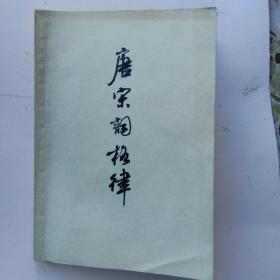 唐宋詞格律